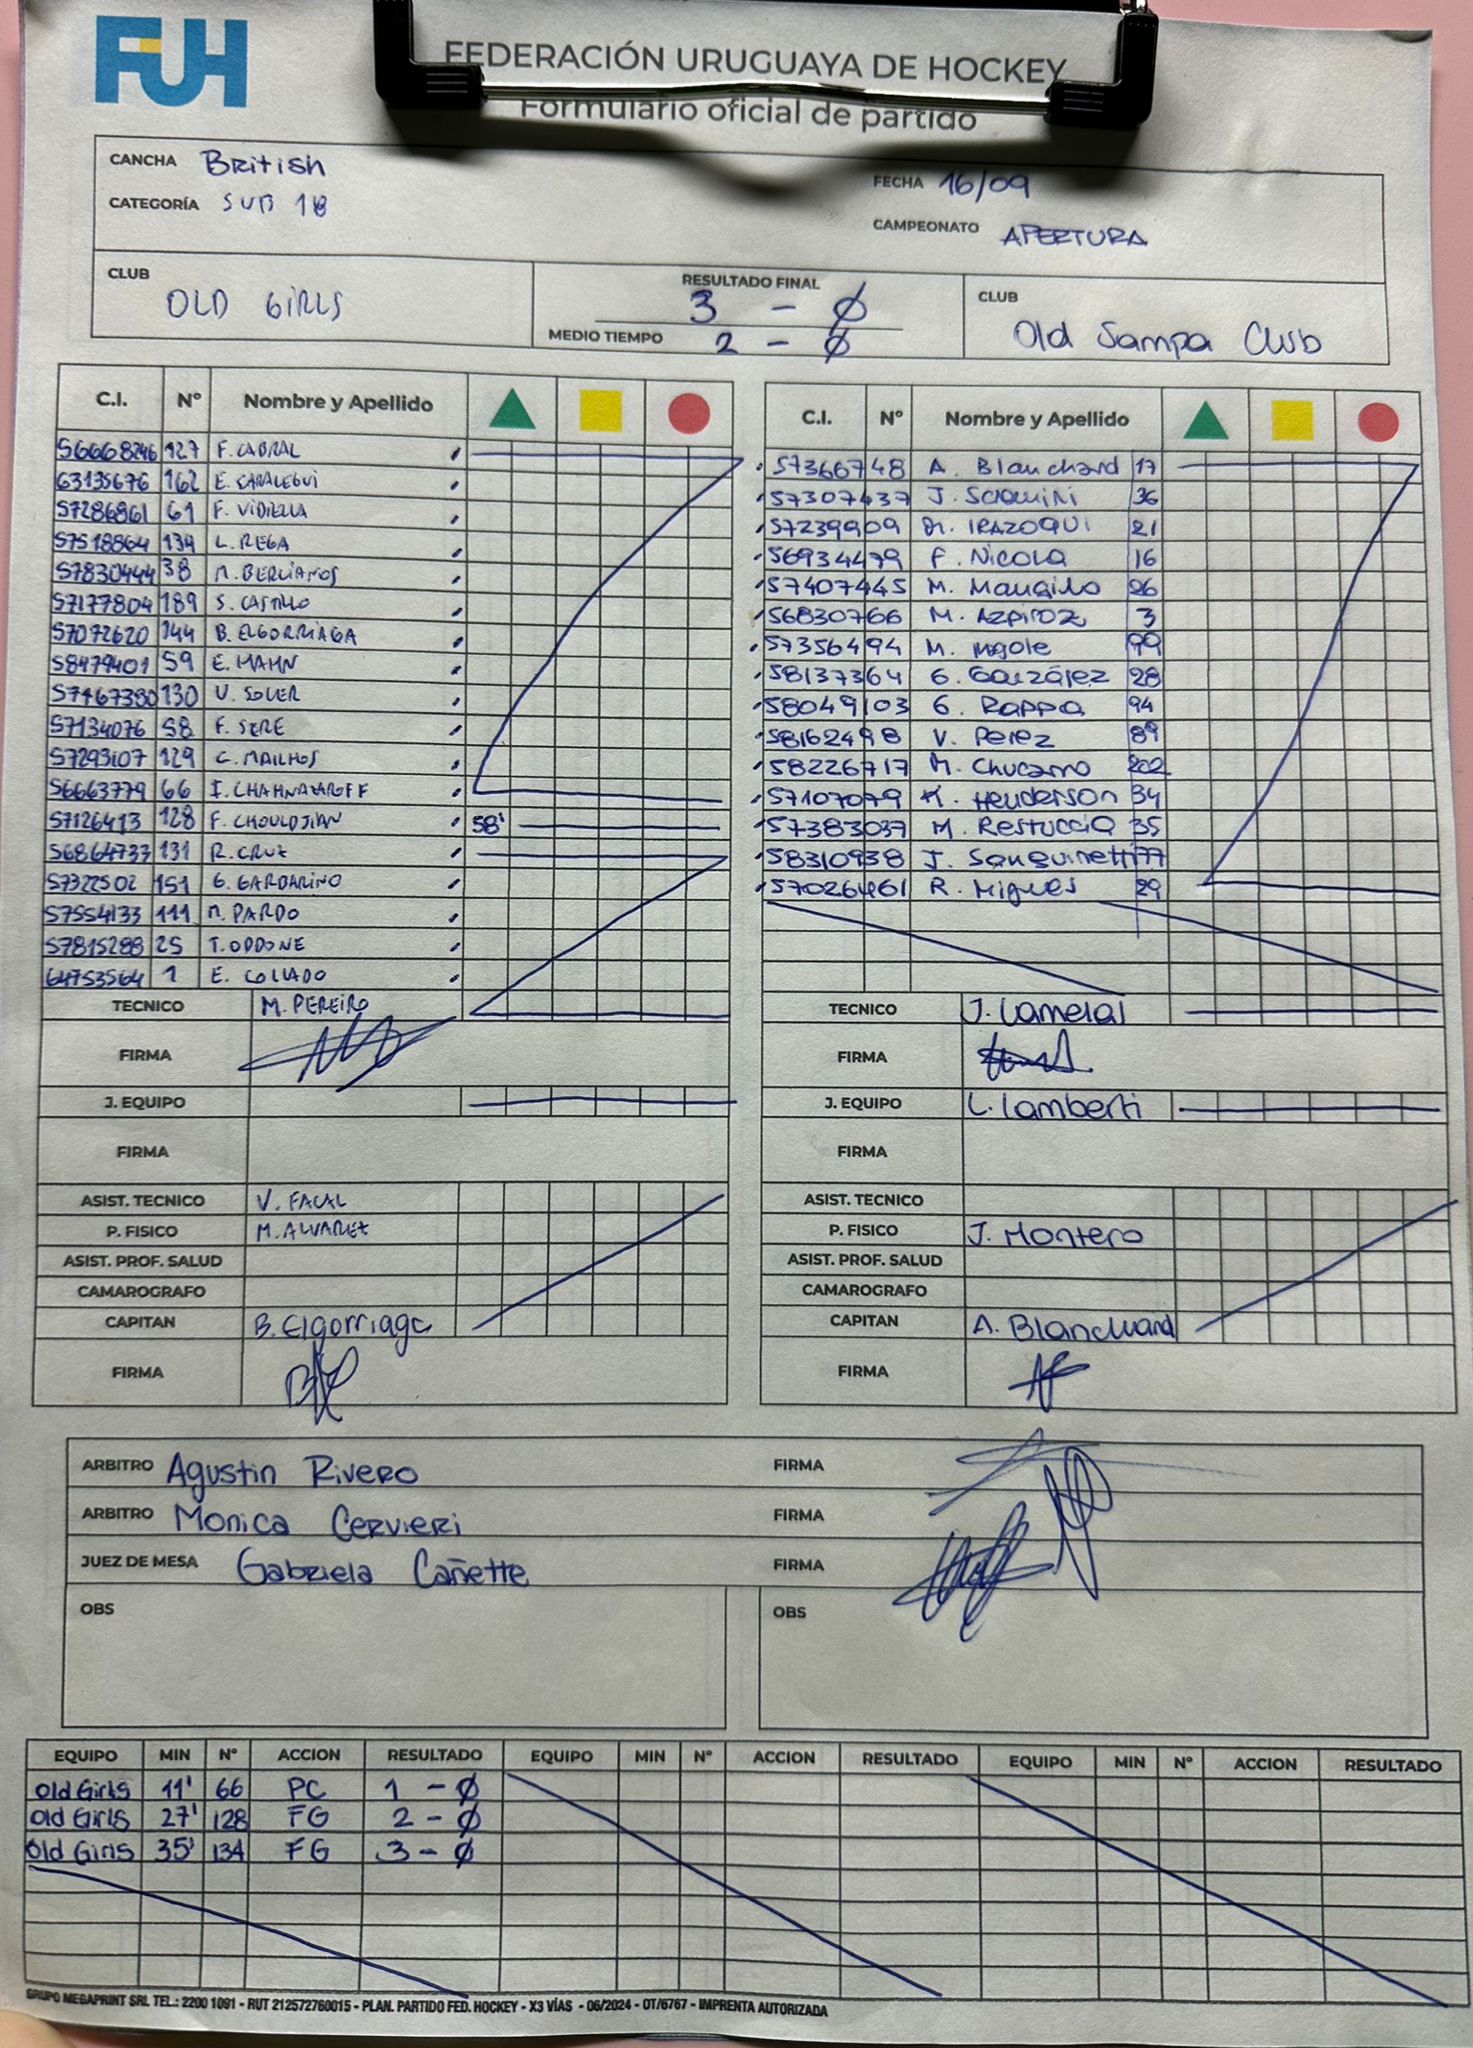 FUH
FEDERACIÓN URUGUAYA DE HOCKEY
Formulario oficial de partido
CANCHA British
FECHA 16/09
CATEGORÍA SUB 18
CAMPEONATO APERTURA
CLUB OLD GIRLS
RESULTADO FINAL 3 - Ø
MEDIO TIEMPO 2 - Ø
CLUB Old Sampa Club
C.I. Nº Nombre y Apellido
56668246 127 F. CABRAL
63135676 162
57286861 61 F. VIDIELLA
57518864 134 L. REGA
57830444 38 M. BERLIANOS
57177804 189 S. CASTILLO
57072620 144 B. ELGORRIAGA
58479401 59 E. MAHN
57467380 130 V. SOLER
57134076 58 F. SERE
57293107 129 C. MAILHOS
56663779 66 I. CHAHNAZAROFF
57126413 128 F. CHOULDJIAN 58'
56864733 131 R. CRUZ
57322502 151 G. GARBARINO
57554133 111 M. PARDO
57815288 25 T. ODDONE
64753564 1 E. COLLADO
TECNICO M. PEREIRO
FIRMA
J. EQUIPO
FIRMA
ASIST. TECNICO V. FACAL
P. FISICO M. ALVAREZ
ASIST. PROF. SALUD
CAMAROGRAFO
CAPITAN B. Elgorriaga
FIRMA
C.I. Nº Nombre y Apellido
57366748 A. Blanchard 17
57307437 J. 36
57239909 M. IRAZOQUI 21
56934479 F. Nicola 16
57407445 M. Maugilo 26
56830766 M. Azpiroz 3
57356494 M. 99
58137364 G. González 28
58049103 G. Rappa 94
58162498 V. Perez 89
58226717 M. Chucarro 202
57107079 K. Henderson 34
57383037 M. Restuccia 35
58310938 J. Sanguinetti 77
57026461 R. Migues 29
TECNICO J. Lameral
FIRMA
J. EQUIPO L. Lamberti
FIRMA
ASIST. TECNICO
P. FISICO J. Montero
ASIST. PROF. SALUD
CAMAROGRAFO
CAPITAN A. Blanchard
FIRMA
ARBITRO Agustin Rivero FIRMA
ARBITRO Monica Cervieri FIRMA
JUEZ DE MESA Gabriela Cañette FIRMA
OBS OBS
EQUIPO MIN Nº ACCION RESULTADO EQUIPO MIN Nº ACCION RESULTADO EQUIPO MIN Nº ACCION RESULTADO
Old Girls 11' 66 PC 1 - Ø
Old Girls 27' 128 FG 2 - Ø
Old Girls 35' 134 FG 3 - Ø
GRUPO MEGAPRINT SRL TEL.: 2200 1091 - RUT 212572760015 - PLAN. PARTIDO FED. HOCKEY - X3 VÍAS - 06/2024 - OT/6767 - IMPRENTA AUTORIZADA